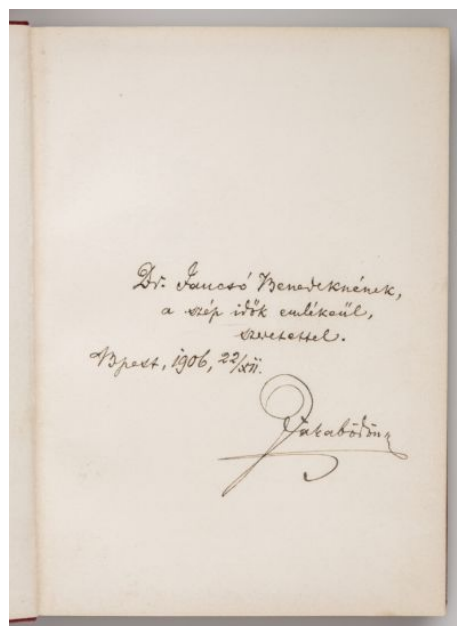 Dr. Jancsó Benedeknének,
a szép idők emlékeül,
szeretettel.
Bpest, 1906, 22/XII.
Jakabödön